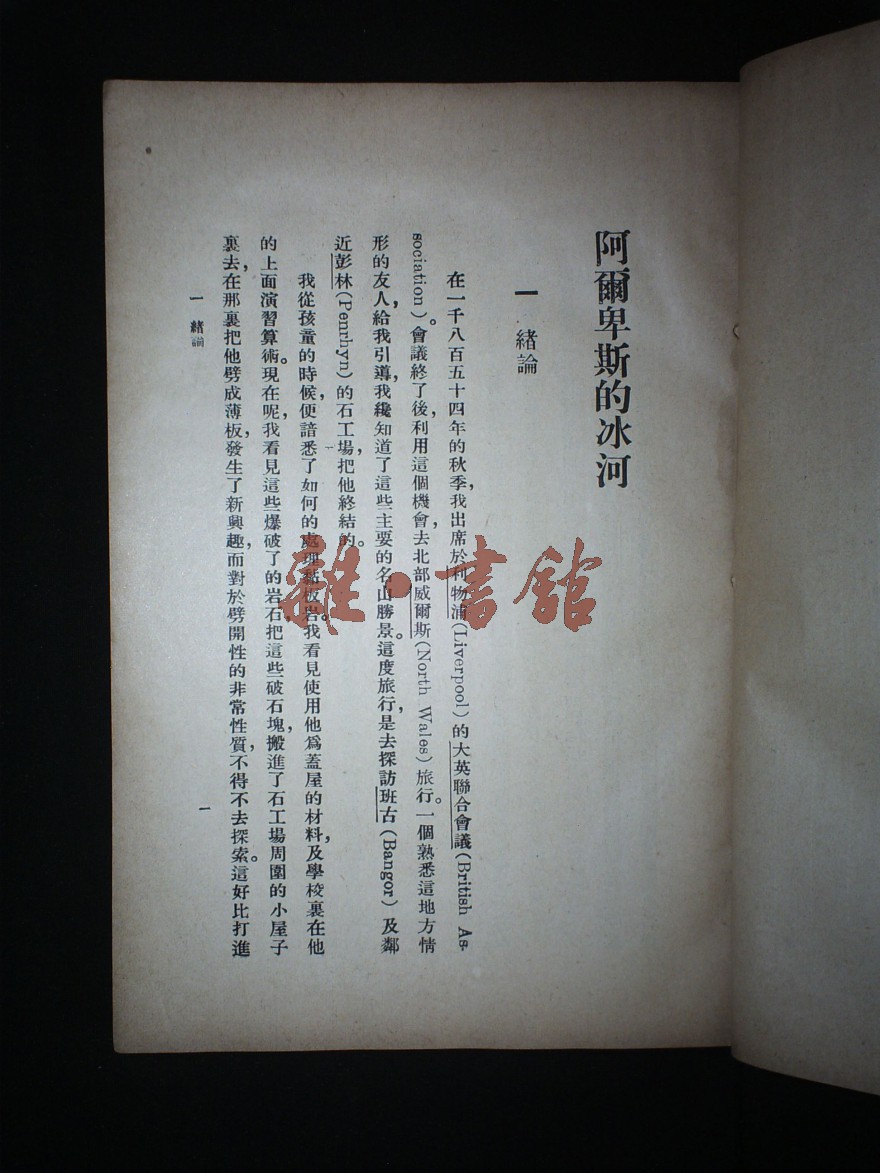 阿爾卑斯的冰河
一 緒論
在一千八百五十四年的秋季，我出席於利物浦(Liverpool)的大英聯合會議(British As-
sociation)。會議終了後，利用這個機會，去北部威爾斯(North Wales)旅行。一個熟悉這地方情
形的友人，給我引導，我纔知道了這些主要的名山勝景。這度旅行，是去探訪班古(Bangor)及鄰
近彭林(Penrhyn)的石工場，把他終結的。
我從孩童的時候，便諳悉了如何的處理黏板岩。我看見使用他爲蓋屋的材料，及學校裏在他
的上面演習算術。現在呢，我看見這些爆破了的岩石，把這些破石塊，搬進了石工場周圍的小屋子
裏去，在那裏把他劈成薄板，發生了新興趣，而對於劈開性的非常性質，不得不去探索。這好比打進
一 緒論
一
雜·書館